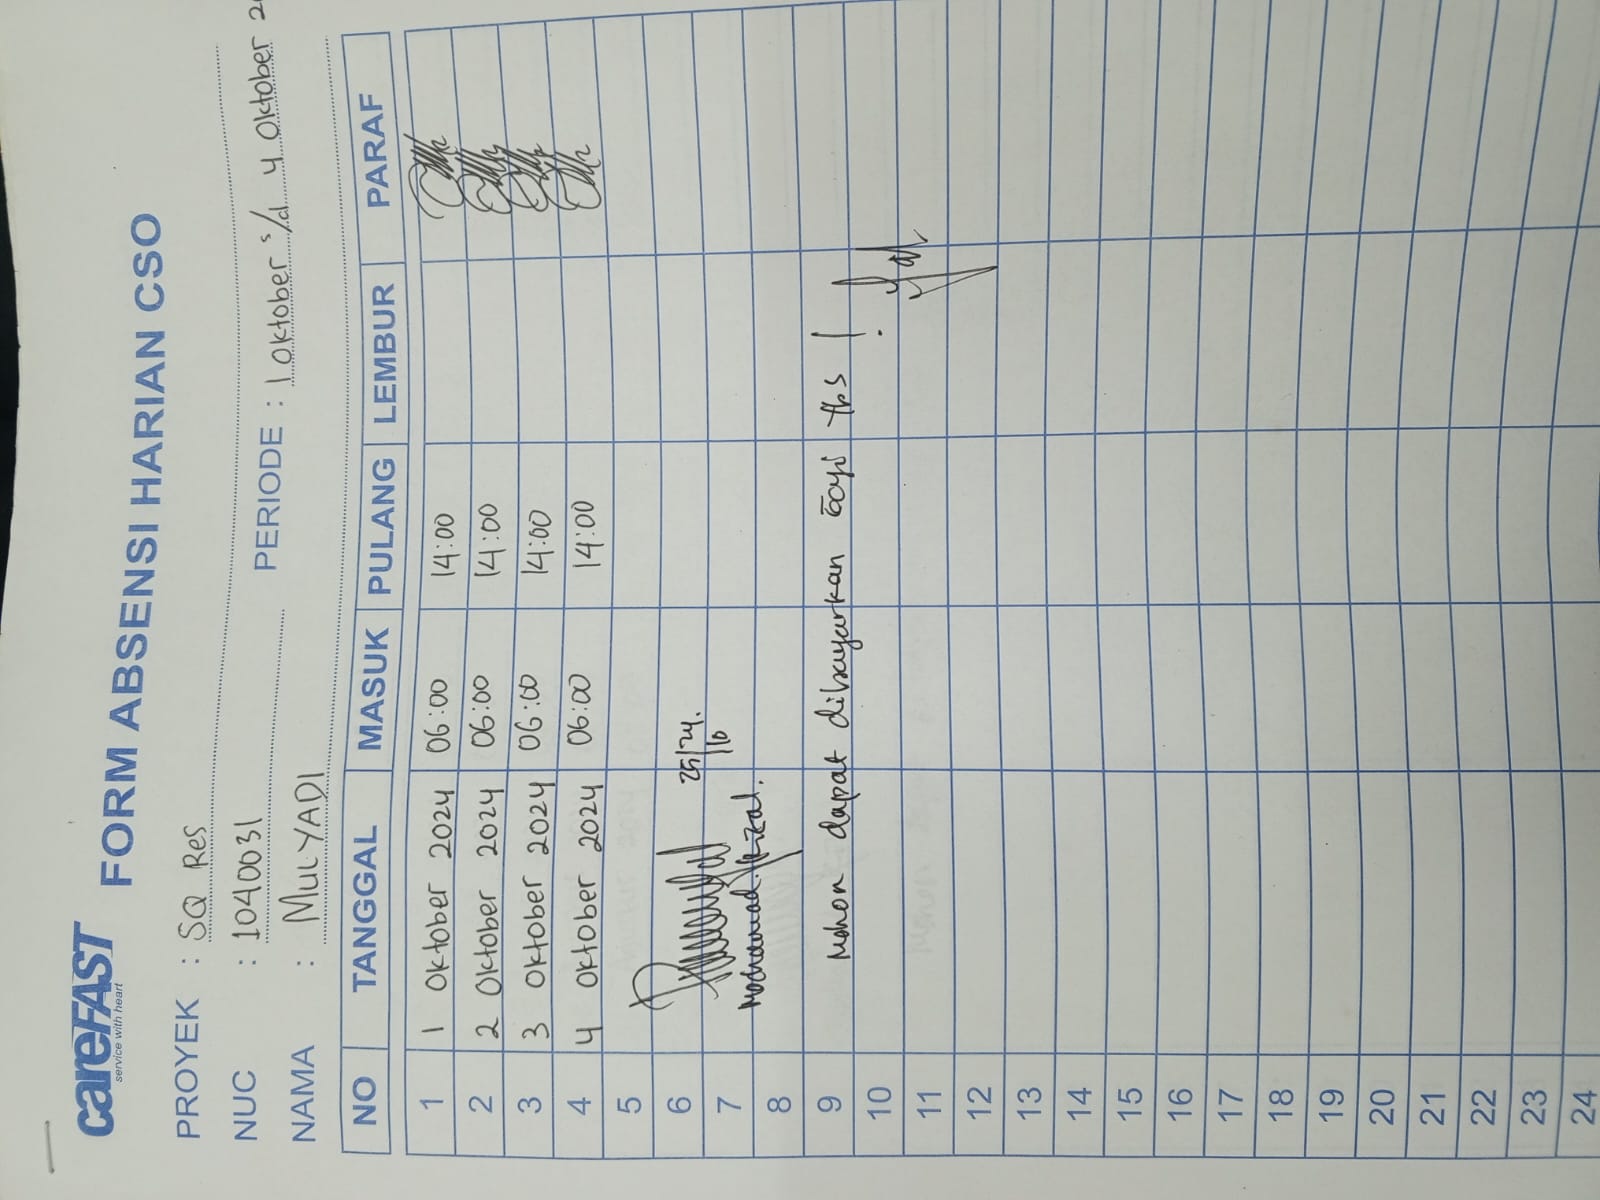 careFAST
service with heart
FORM ABSENSI HARIAN CSO
PROYEK : SQ Res
NUC : 1040031
PERIODE : 1 oktober s/d 4 oktober
NAMA : MULYADI
NO TANGGAL MASUK PULANG LEMBUR PARAF
1 1 oktober 2024 06:00 14:00
2 2 oktober 2024 06:00 14:00
3 3 oktober 2024 06:00 14:00
4 4 oktober 2024 06:00 14:00
5
6 25/24.
7 10
Mochamad. Rizal.
8
9 Mohon dapat dibayarkan tbs !
10
11
12
13
14
15
16
17
18
19
20
21
22
23
24